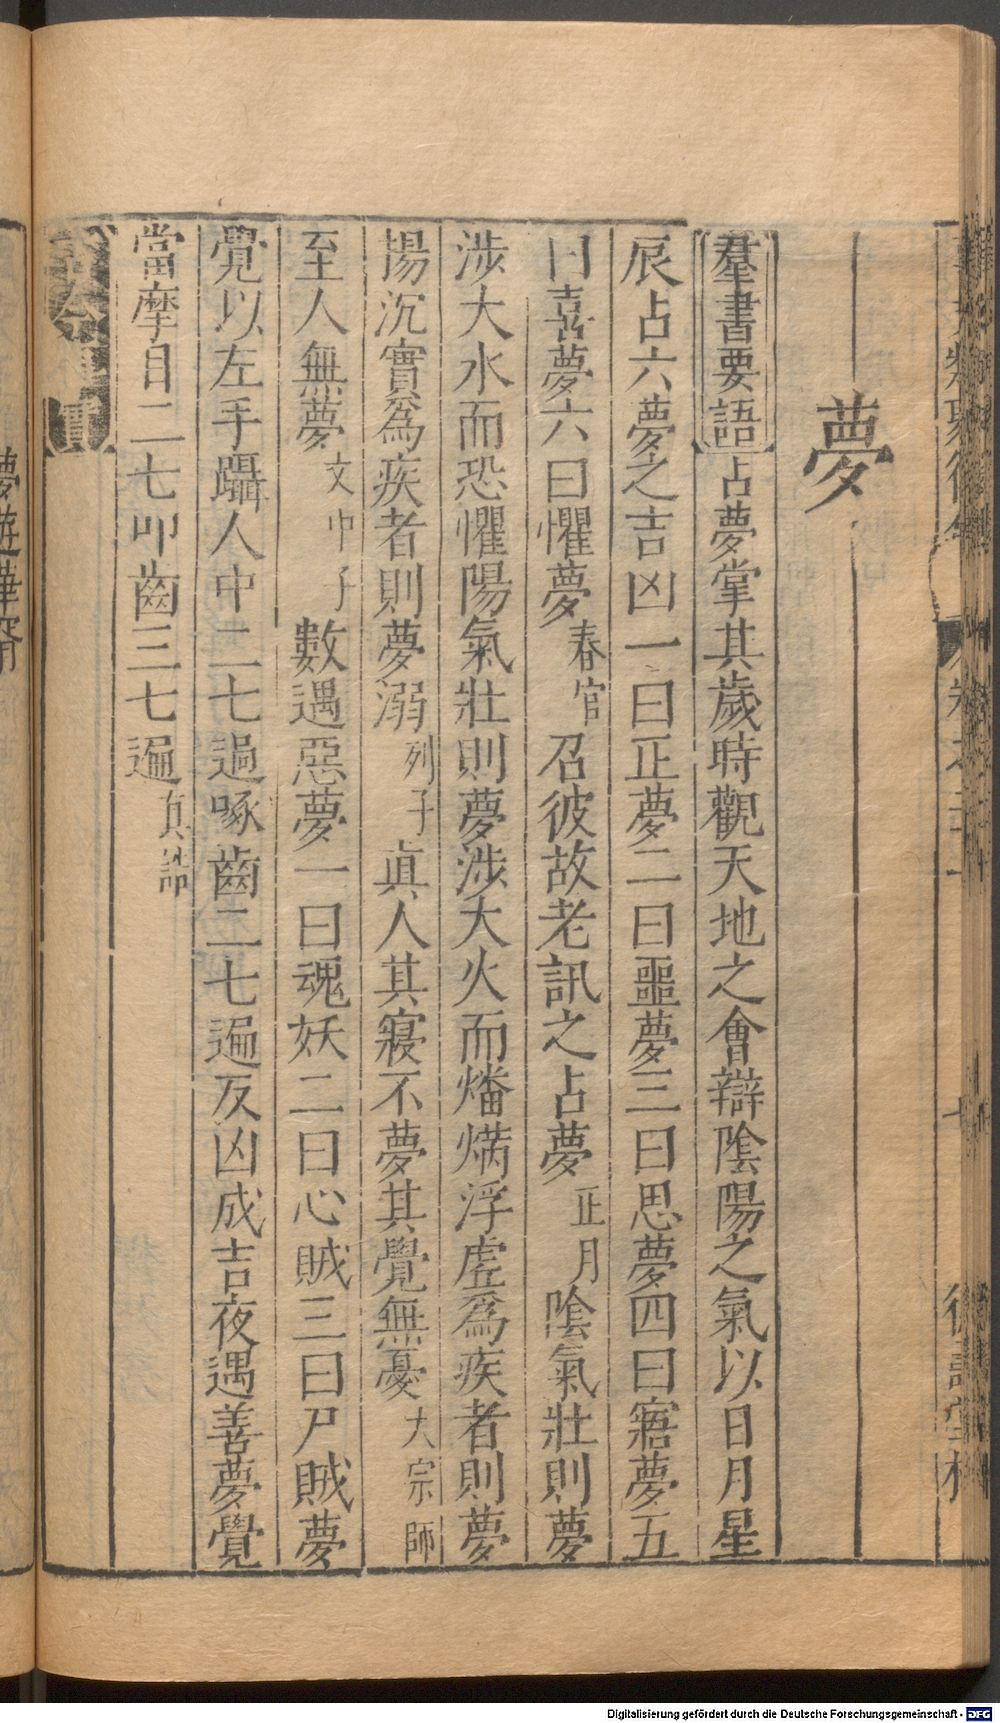 夢
羣書要語占夢掌其歲時觀天地之會辯陰陽之氣以日月星
辰占六夢之吉凶一曰正夢二曰噩夢三曰思夢四曰寤夢五
曰喜夢六曰懼夢春官召彼故老訊之占夢正月陰氣壯則夢
涉大水而恐懼陽氣壯則夢涉大火而燔焫浮虛爲疾者則夢
揚沉實爲疾者則夢溺列子真人其寢不夢其覺無憂大宗師
至人無夢文中子數遇惡夢一曰魂妖二曰心賊三曰尸賊夢
覺以左手躡人中二七過啄齒二七遍反凶成吉夜遇善夢覺
當摩目二七叩齒三七遍真誥
夢遊華胥
Digitalisierung gefördert durch die Deutsche Forschungsgemeinschaft - DFG